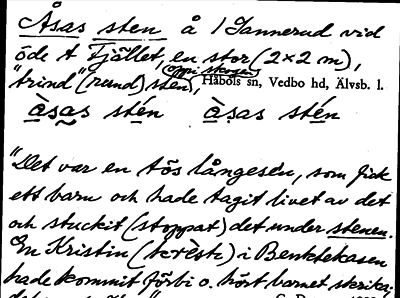 Åsas sten å 1 Jannerud vid
öde t Fjället, en stor (2×2 m),
uppi skogen
"trind" (rund) sten, Håbols sn, Vedbo hd, Älvsb. l.
àsas stén àsas stén
"Det var en tös långesen, som fick
ett barn och hade tagit livet av det
och stuckit (stoppat) det under stenen.
En Kristin ( ) i Bentekasen
hade kommit förbi o. hört barnet skrika,